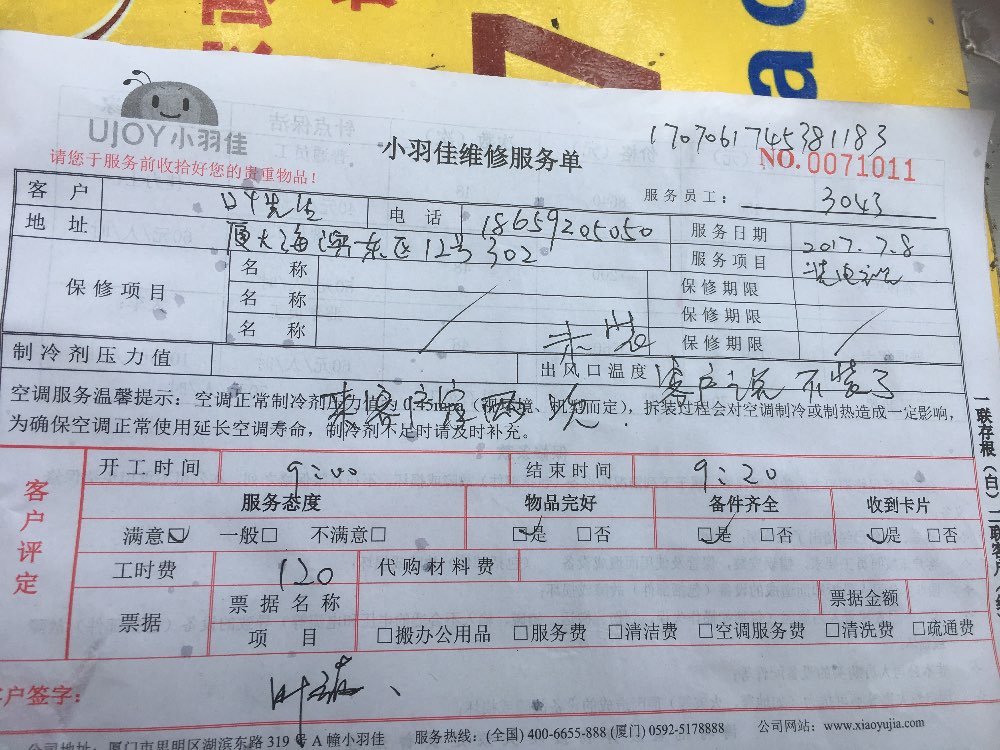 UJOY小羽佳
小羽佳维修服务单
1707061745381183
NO.0071011
请您于服务前收拾好您的贵重物品！
服务员工： 3043
客户 叶先生 电话 18659205050 服务日期 2017.7.8
地址 海滨东区12号302 服务项目
保修项目 名称 保修期限
名称 保修期限
名称 未装 保修期限
制冷剂压力值 出风口温度 客户说不装了
空调服务温馨提示：空调正常制冷剂压力值为0.45mpa（视环境、机况而定），拆装过程会对空调制冷或制热造成一定影响，
为确保空调正常使用延长空调寿命，制冷剂不足时请及时补充。
客户评定
开工时间 9:00 结束时间 9:20
服务态度 物品完好 备件齐全 收到卡片
满意☑ 一般□ 不满意□ ☑是 □否 ☑是 □否 ☑是 □否
工时费 120 代购材料费
票据 票据名称 票据金额
项目 □搬办公用品 □服务费 □清洁费 □空调服务费 □清洗费 □疏通费
客户签字：
公司地址：厦门市思明区湖滨东路319号A幢小羽佳 服务热线：(全国) 400-6655-888 (厦门) 0592-5178888 公司网站：www.xiaoyujia.com
一联存根（白）